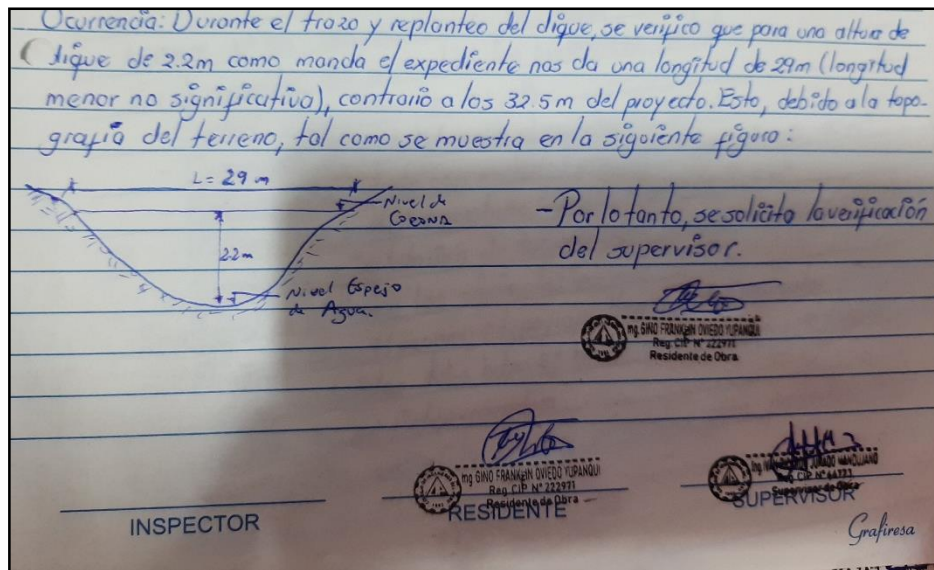 Ocurrencia: Durante el trazo y replanteo del dique, se verifico que para una altura de
dique de 2.2m como manda el expediente nos da una longitud de 29m (longitud
menor no significativa), contrario a los 32.5m del proyecto. Esto, debido a la topo-
grafía del terreno, tal como se muestra en la siguiente figura:
L= 29 m
Nivel de
Corona
2.2m
Nivel Espejo
de Agua.
- Por lo tanto, se solicita la verificación
del supervisor.
Ing. GINO FRANKLIN OVIEDO YUPANQUI
Reg. CIP N° 222971
Residente de Obra
Ing. GINO FRANKLIN OVIEDO YUPANQUI
Reg. CIP N° 222971
Residente de Obra
JURADO
Supervisor de Obra
INSPECTOR
RESIDENTE
SUPERVISOR
Grafiresa